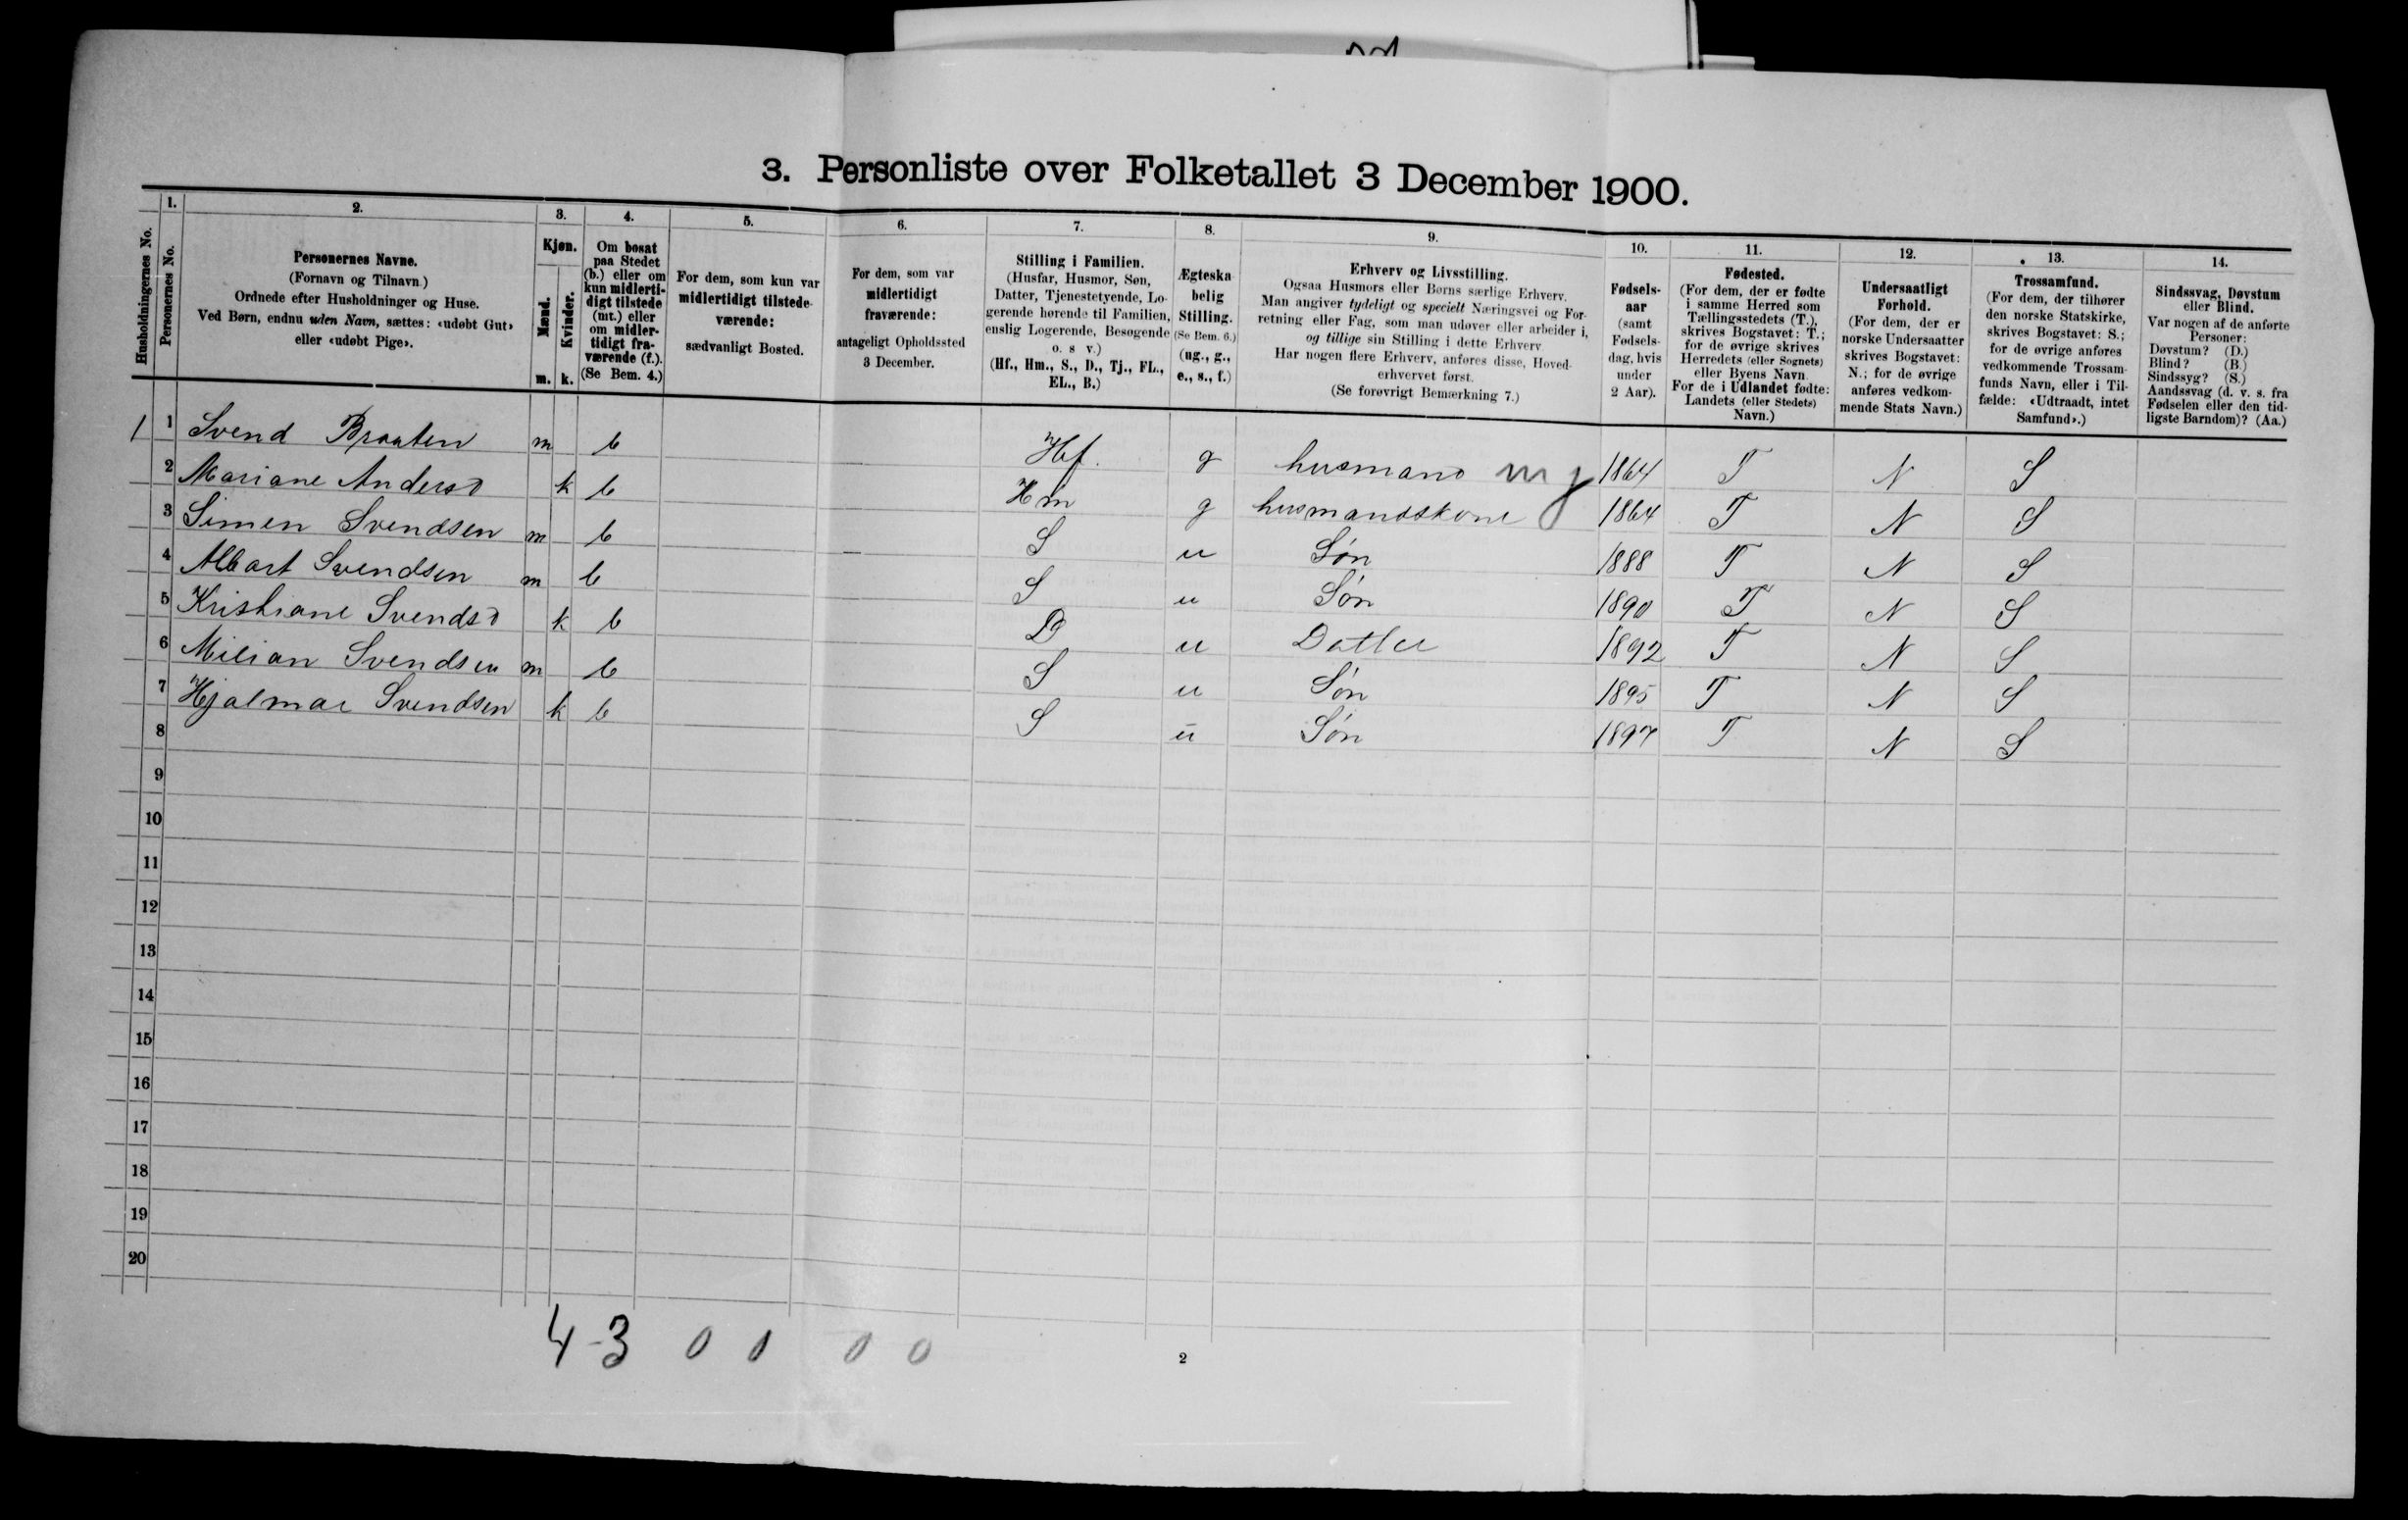 3. Personliste over Folketallet 3 December 1900.
Husholdningernes No.
1.
Personernes No.
2.
Personernes Navne.
(Fornavn og Tilnavn.)
Ordnede efter Husholdninger og Huse.
Ved Børn, endnu uden Navn, sættes: «udøbt Gut»
eller «udøbt Pige».
3.
Kjøn.
Mænd.
Kvinder.
m. k.
4.
Om bosat
paa Stedet
(b.) eller om
kun midlerti-
digt tilstede
(mt.) eller
om midler-
tidigt fra-
værende (f.).
(Se Bem. 4.)
5.
For dem, som kun var
midlertidigt tilstede-
værende:
sædvanligt Bosted.
6.
For dem, som var
midlertidigt
fraværende:
antageligt Opholdssted
3 December.
7.
Stilling i Familien.
(Husfar, Husmor, Søn,
Datter, Tjenestetyende, Lo-
gerende hørende til Familien,
enslig Logerende, Besøgende
o. s v.)
(Hf., Hm., S., D., Tj., FL.,
EL., B.)
8.
Ægteska-
belig
Stilling.
(Se Bem. 6.)
(ug., g.,
e., s., f.)
9.
Erhverv og Livsstilling.
Ogsaa Husmors eller Børns særlige Erhverv.
Man angiver tydeligt og specielt Næringsvei og For-
retning eller Fag, som man udøver eller arbeider i,
og tillige sin Stilling i dette Erhverv
Har nogen flere Erhverv, anføres disse, Hoved-
erhvervet først.
(Se forøvrigt Bemærkning 7.)
10.
Fødsels-
aar
(samt
Fødsels-
dag, hvis
under
2 Aar).
11.
Fødested.
(For dem, der er fødte
i samme Herred som
Tællingsstedets (T.),
skrives Bogstavet: T.;
for de øvrige skrives
Herredets (eller Sognets)
eller Byens Navn
For de i Udlandet fødte:
Landets (eller Stedets)
Navn.)
12.
Undersaatligt
Forhold.
(For dem, der er
norske Undersaatter
skrives Bogstavet:
N.; for de øvrige
anføres vedkom-
mende Stats Navn.)
13.
Trossamfund.
(For dem, der tilhører
den norske Statskirke,
skrives Bogstavet: S.;
for de øvrige anføres
vedkommende Trossam-
funds Navn, eller i Til-
fælde: «Udtraadt, intet
Samfund».)
14.
Sindssvag, Døvstum
eller Blind.
Var nogen af de anførte
Personer:
Døvstum? (D.)
Blind? (B.)
Sindssyg? (S.)
Aandssvag (d. v. s. fra
Fødselen eller den tid-
ligste Barndom)? (Aa.)
1 1 Svend Braaten m b Hf. g husmand m j 1864 T N S
2 Mariane Andersd k b Hm g husmandskone 1864 T N S
3 Simen Svendsen m b S u Søn 1888 T N S
4 Albart Svendsen m b S u Søn 1890 T N S
5 Kristiane Svendsd k b D u Datter 1892 T N S
6 Milian Svendsen m b S u Søn 1895 T N S
7 Hjalmar Svendsen k b S u Søn 1897 T N S
8
9
10
11
12
13
14
15
16
17
18
19
20
4-3 0 0 0 0
2